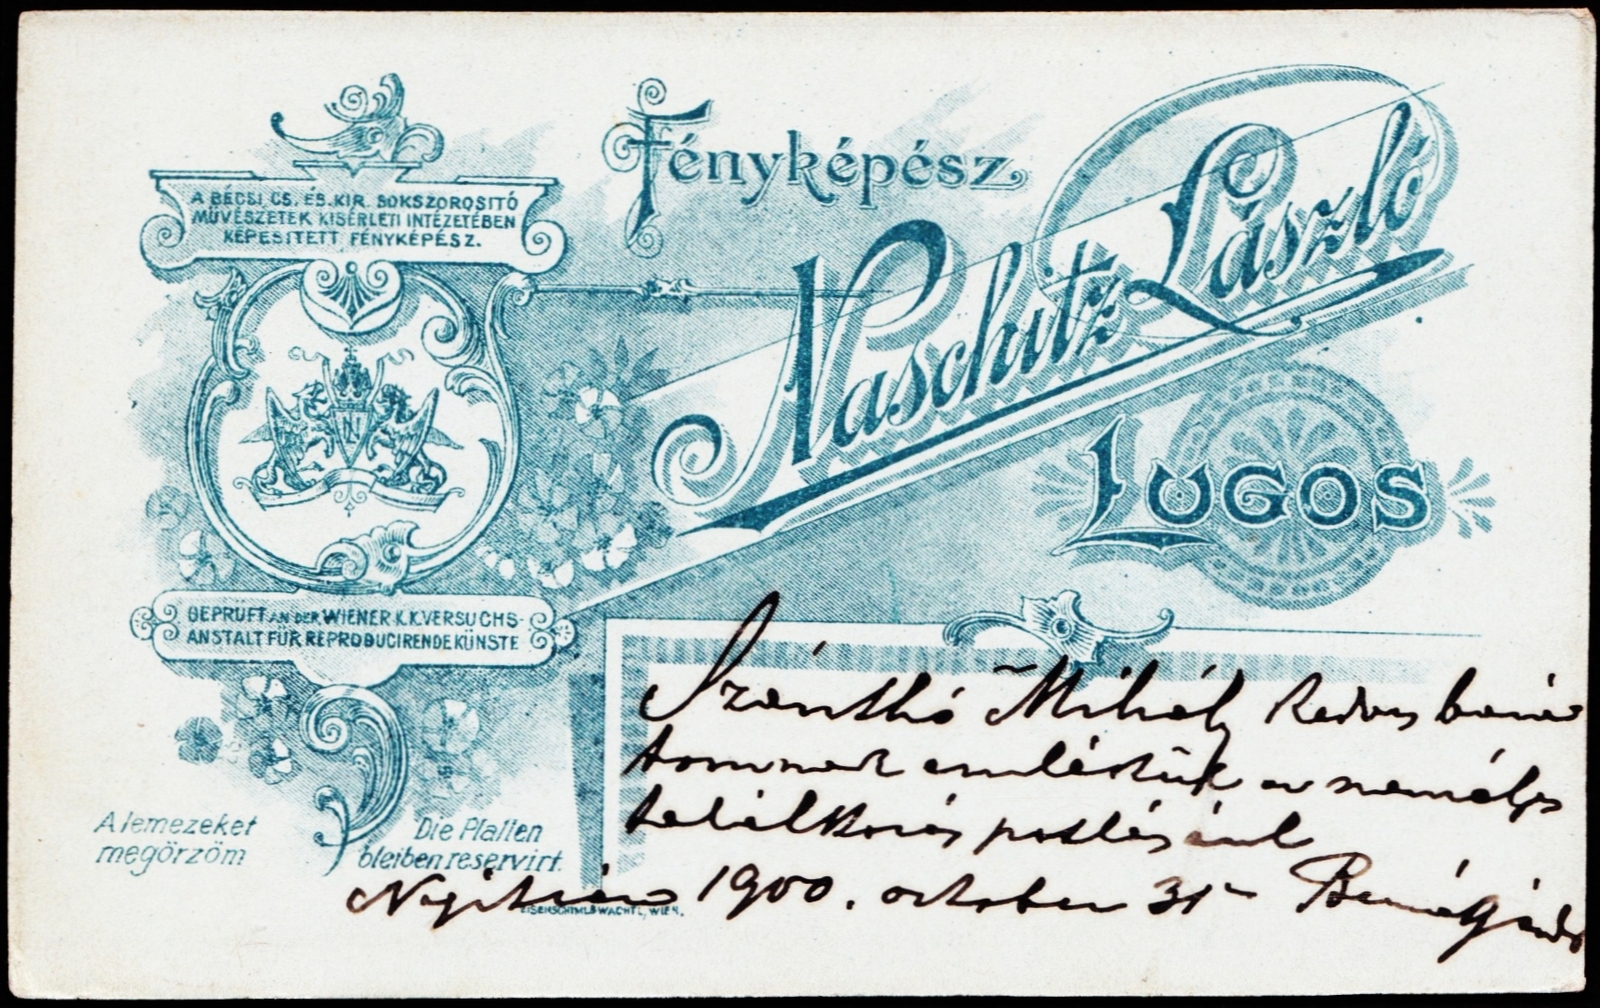 Fényképész
Naschitz László
LUGOS
A BÉCSI CS. ÉS KIR. SOKSZOROSITÓ
MŰVÉSZETEK KISÉRLETI INTÉZETÉBEN
KÉPESITETT FÉNYKÉPÉSZ.
NL
GEPRÜFT AN DER WIENER K.K. VERSUCHS-
ANSTALT FÜR REPRODUCIRENDE KÜNSTE
A lemezeket
megörzöm
Die Platten
bleiben reservirt.
EISENSCHIML & WACHTL, WIEN.
Szánthó Mihály kedves bará
tomnak emlékül a személyes
találkozás pótlásául
1900. october 31